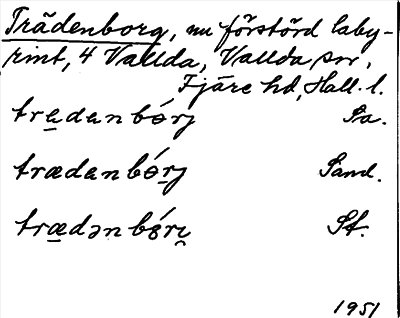 Trädenborg, nu förstörd laby-
rint, 4 Vallda, Vallda sn,
Fjäre hd, Hall. l.
træ̱denbǿrj Sa.
trædenbǿ̱rj Sand.
træ̱dənbǿri̯ St.
1951